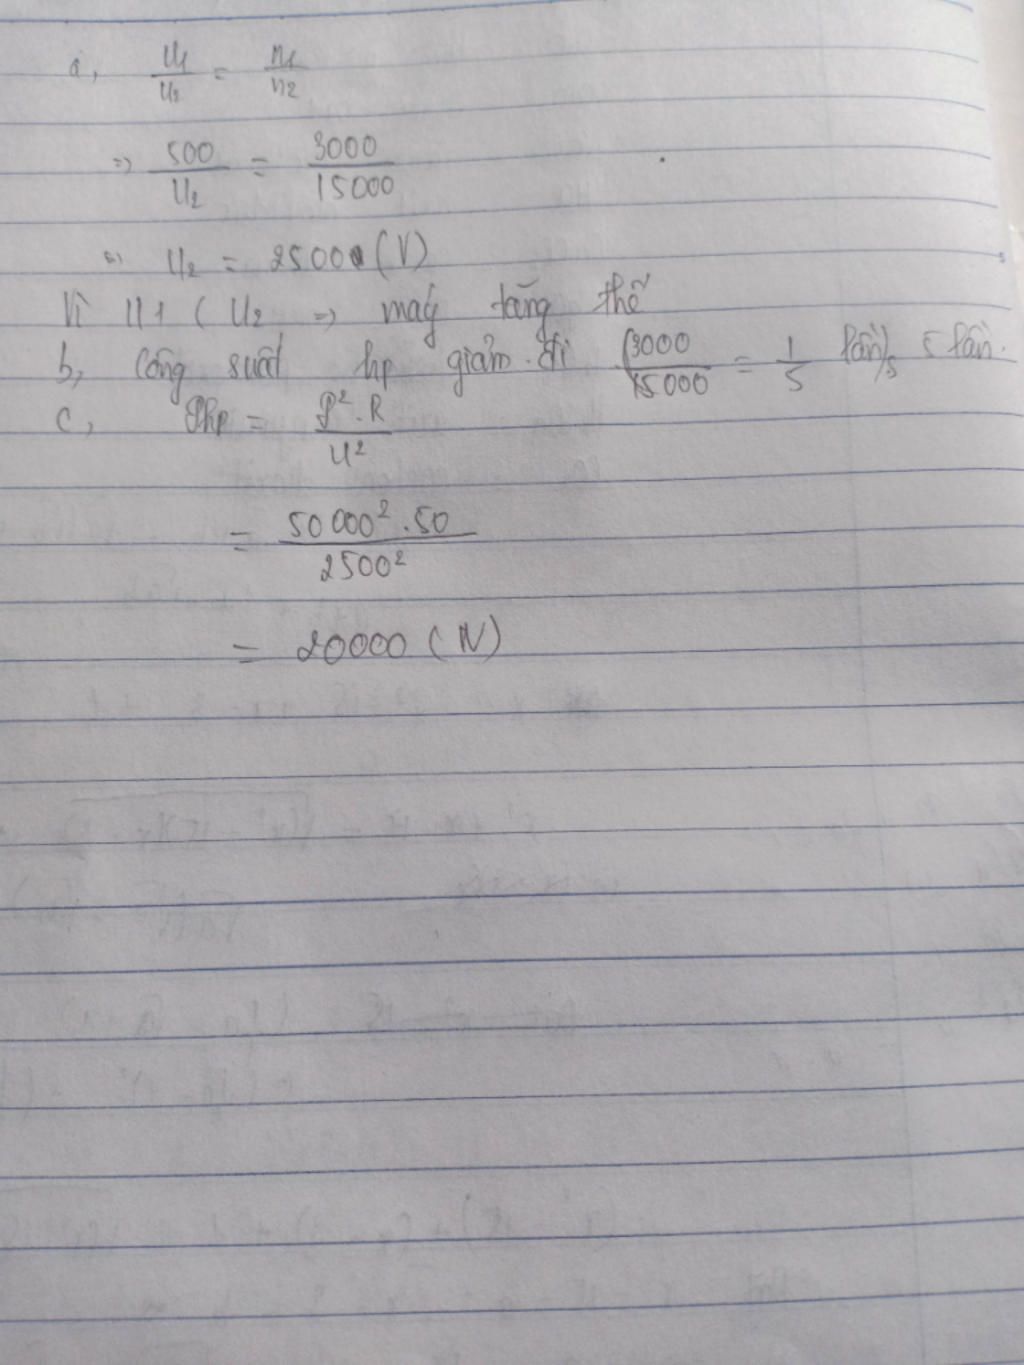 a, U1/U2 = n1/n2
=> 500/U2 = 3000/15000
=> U2 = 2500 (V)
Vì U1 < U2 => máy tăng thế
b, Công suất hp giảm đi 3000/15000 = 1/5 lần 5 lần.
c, Php = P².R/U²
= 50000².50/2500²
= 20000 (W)